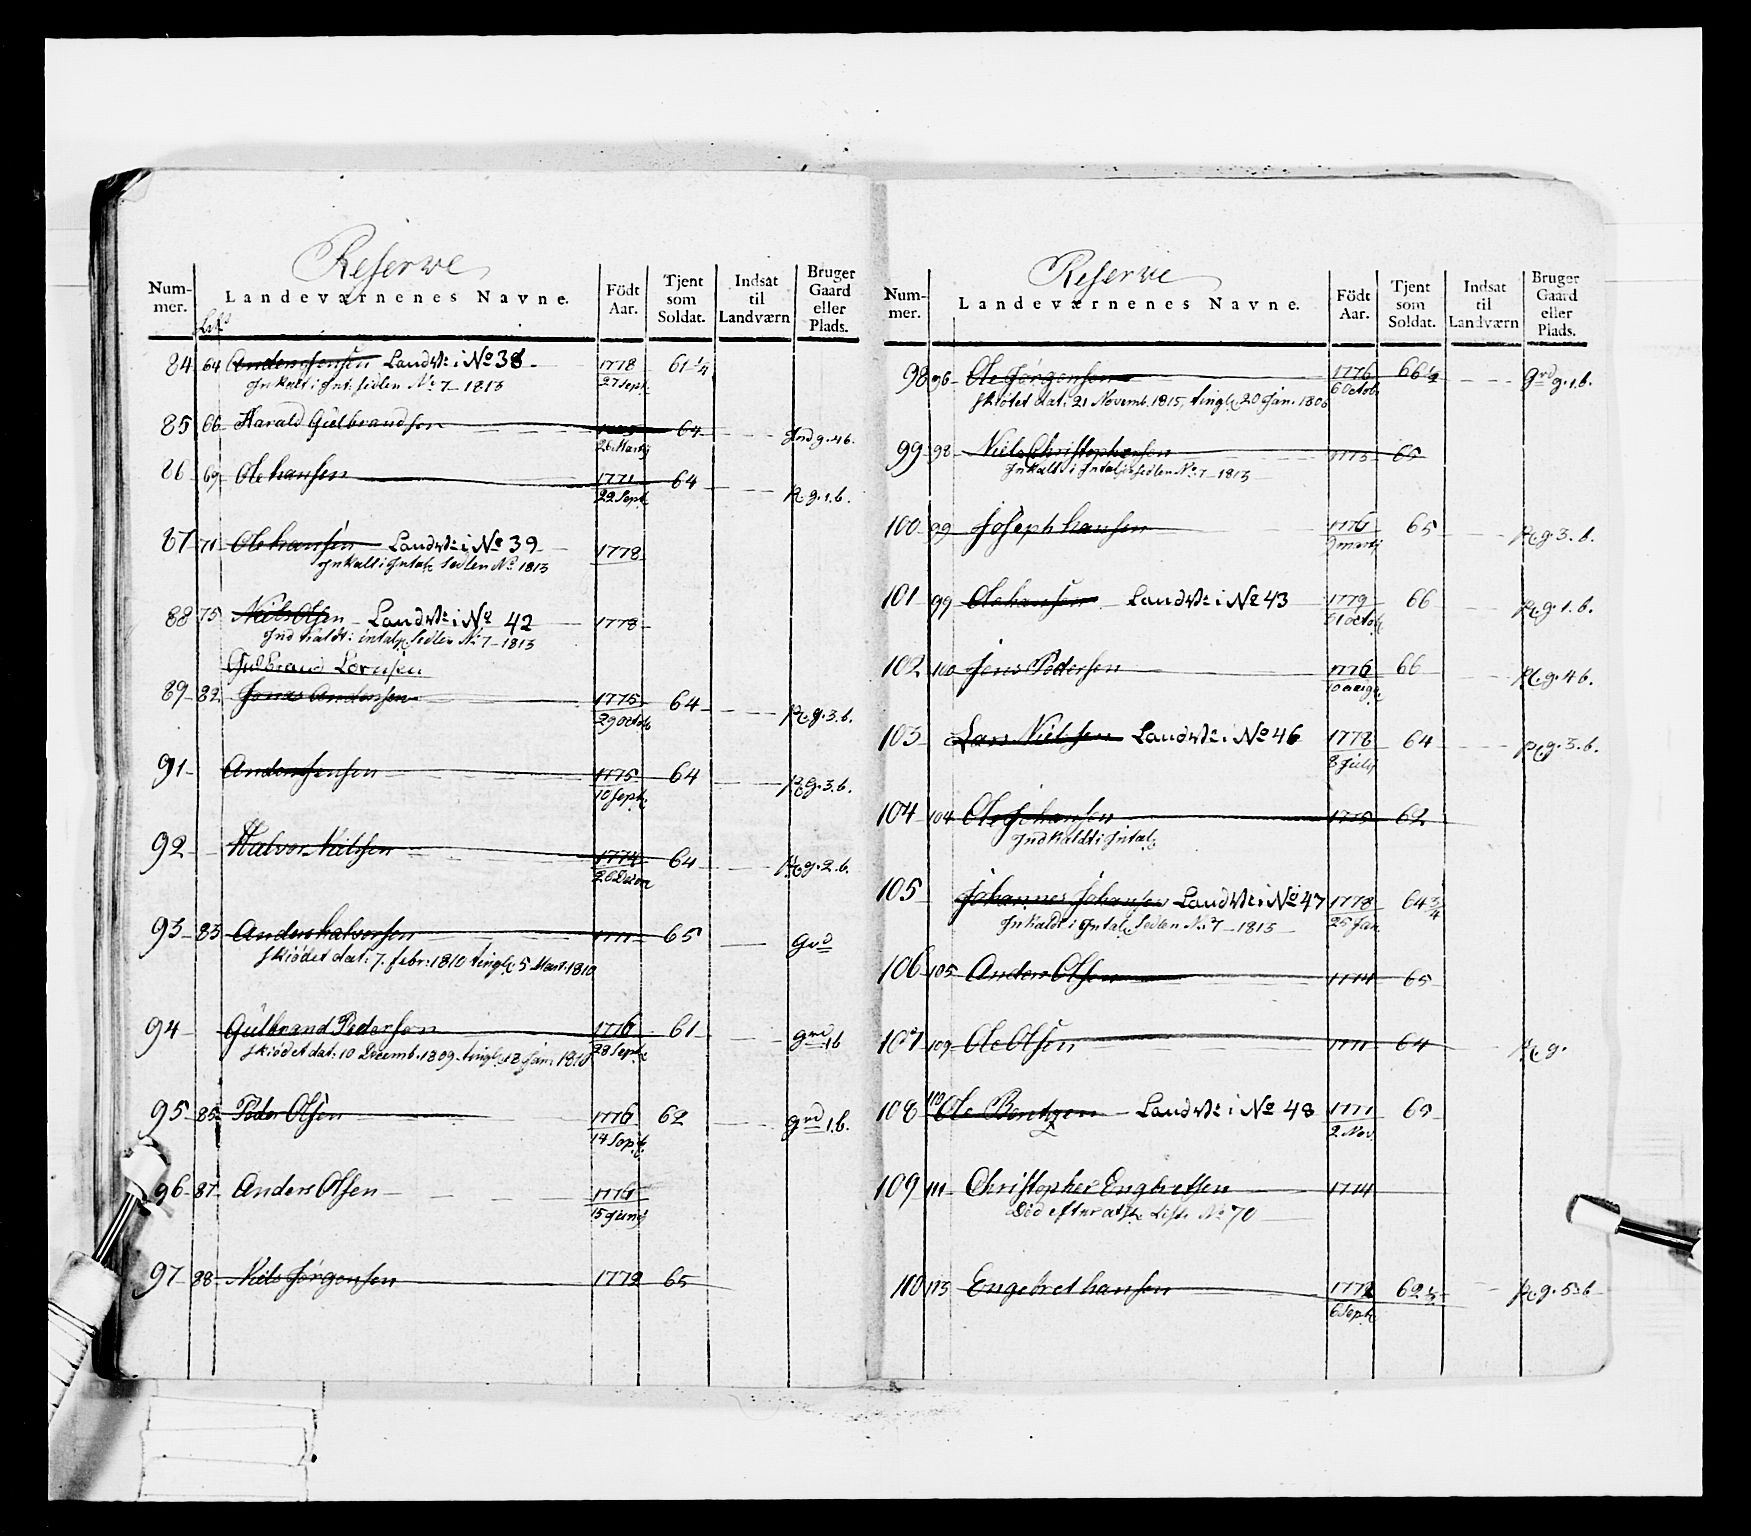 Reserve
Num-
mer.
Landeværnenes Navne.
Födt
Aar.
Tjent
som
Soldat.
Indsat
til
Landværn
Bruger
Gaard
eller
Plads.
84 64 Anders Jensen Landv: i No 38 1778 61 1/4
Inkalt i Int: Sedlen No 7 - 1813 27 Sept.
85 66 Harald Gulbrandsen 64 g. 4 b.
26 Martj
86 69 Ole Hansen 1771 64 Pl. g. 1. b.
22 Sept.
87 71 Ole Hansen Landv: i No 39 1778
Inkalt i Intal: Sedlen No 1813
88 75 Niels Olsen Landv: i No 42 1778
Ind kaldt: i intal: Sedlen No 7 - 1813
Gulbrand
89 82 Jonas Andersen 1775 64 Pl. g. 3. b.
29 Octob
91 Anders Jensen 1775 64 Pl. g. 3. b.
10 Sept.
92 Halvor Nielsen 1774 64 Pl. g. 2. b.
26 Decm
93 83 Anders Halvorsen 1771 65 Grd
Skiödet dat: 7. febr: 1810 tingl: 5 Mart. 1810
94 Gulbrand Pedersen 1776 61 Grd 1 b
Skiödet dat: 10 Decemb. 1809 tingl: 12 Jan. 1810 28 Sept.
95 85 Peder Olsen 1776 62 Grd 1. b.
14 Sept.
96 87 Anders Olsen 1776
15 Junij
97 88 Niels Jörgensen 1772 65
Reserve
Num-
mer.
Landeværnenes Navne.
Födt
Aar.
Tjent
som
Soldat.
Indsat
til
Landværn
Bruger
Gaard
eller
Plads.
98 96 Ole Jörgensen 1776 66 1/2 Grd g. 1. b.
Skiötet dat: 21 Novemb. 1815, tingl: 20 Jan. 6 Octob.
99 98 Niels Christophersen 1773 65
Inkaldt i Intal: Sedlen No 7 - 1813
100 99 Joseph Hansen 1776 65 Pl. g. 3. b.
9 Martj
101 99 Ole Hansen Landv: i No 43 1779 66 Pl. g. 1. b.
Octob.
102 100 Jens Pedersen 1776 66 Pl. g. 4 b.
10 Aug.
103 Lars Nielsen Landv: i No 46 1778 64 Pl. g. 3. b.
8 Julij
104 104 Ole Johansen 1775 62
Indkaldt i Intal:
105 Johannes Johansen Landv: i No 47 1778 64 3/4
Inkaldt i Intal: Sedlen No 7 - 1813 25 Jan.
106 105 Anders Olsen 1774 65
107 109 Ole Olsen 1771 64 Pl. g.
108 110 Ole Bentzen Landv: i No 48 1771 65
2 Nov.
109 111 Christopher Engbretsen 1774
Död efter Liste No 70
110 113 Engebret Hansen 1772 62 Pl. g. 5 b
6 Sept.